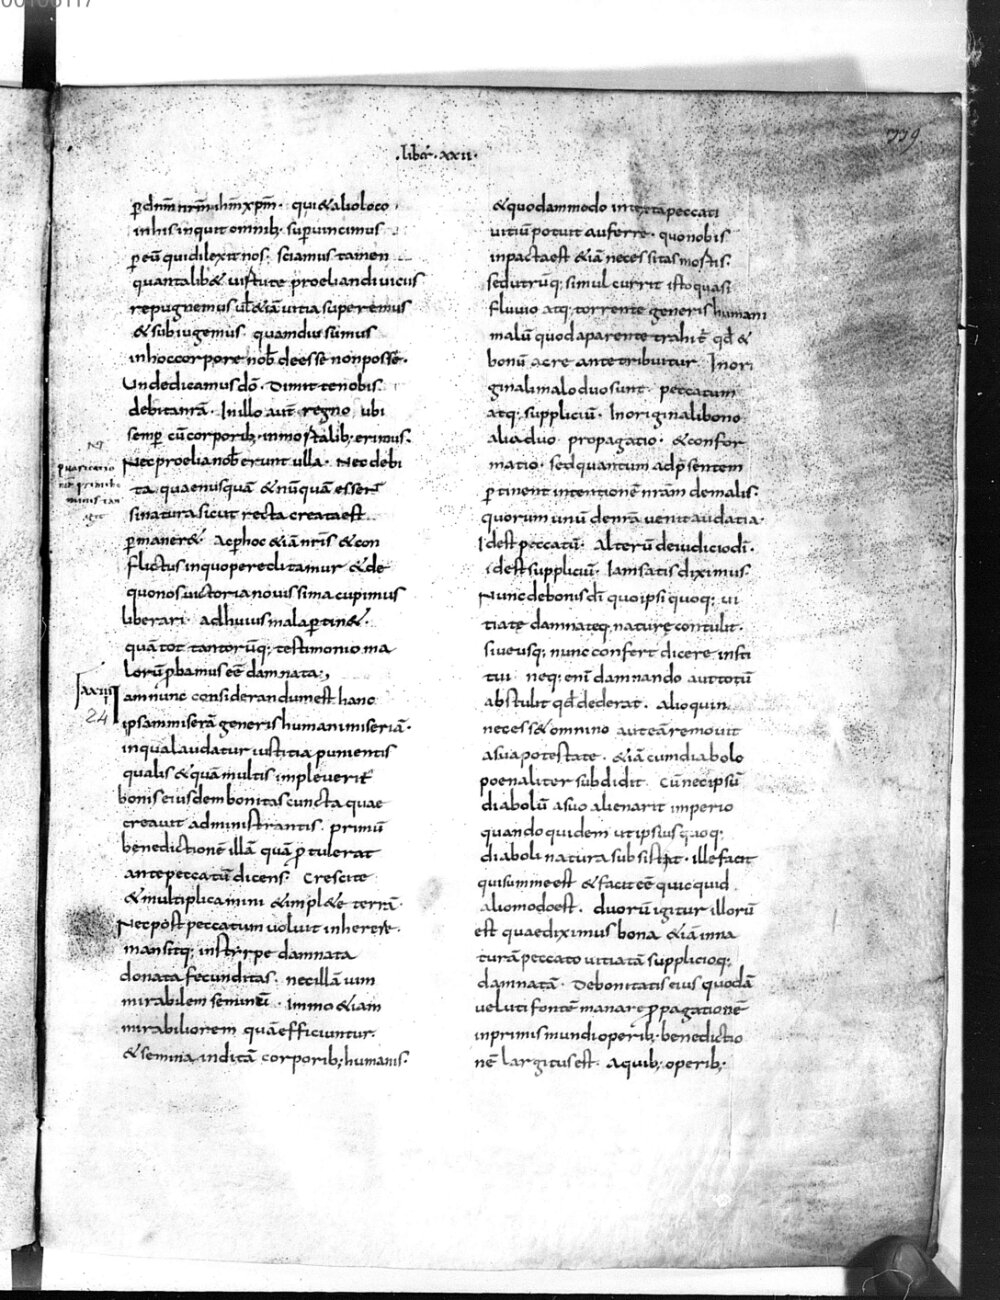 00100117
339
.liber. xxii.
p̱ dn̄m nr̄m ihm̄ xpm̄. qui & alio loco
inhis inquit omnib; sup̱ uincimus
p̱ eū qui dilexit nos. sciamus tamen
quantalib& uirtute proeliandi uiciis
repugnemus ul̄ &iā uitia superemus
& subiugemus. quamdiu sumus
inhoc corpore nob̄ deesse non posse.
Unde dicamus dō. Dimitte nobis
debita nr̄a. In illo aut̄ regno ubi
semp̱ cū corporib; inmortalib; erimus.
Nec proelia nob̄ erunt ulla. Nec debi
ta quae nusquā & nūquā essent
si natura sicut recta creata est
p̱maner&. Ac p̱ hoc &iā nr̄is & con
flictus inquo pereclitamur & de
quo nos uictoria nouissima cupimus
liberari. ad huius mala p̱tin&.
quā tot tantorūq; testimonio ma
lorū p̱bamus eē damnata.
xxiiii
24
Iam nunc considerandum est hanc
ipsam miserā generis humani miseriā.
inqua laudatur iustitia punientis
qualis & quā multis impleuerit
bonis eiusdem bonitas cuncta quae
creauit administrantis. primū
benedictionē illā quā p̱tulerat
ante peccatū dicens. Crescite
& multiplicamini & impl&e terrā.
Nec post peccatum uoluit inhere.
mansitq; instyrpe damnata
donata fecunditas. nec illā uim
mirabilem seminū. Immo &iam
mirabiliorem quā efficiuntur.
& semina inditā corporib; humanis.
& quodammodo intexta peccati
uitiū potuit auferre. quo nobis
inpacta est &iā necessitas mortis.
sed utrūq; simul currit isto quasi
fluuio atq; torrente generis humani
malū quod a parente trahit̄ qd̄ &
bonū a creante tribuitur. In ori
ginali malo duo sunt. peccatum
atq; suppliciū. In originali bono
alia duo propagatio. & confor
matio. sed quantum ad p̄sentem
p̱tinent intentionē nr̄am de malis.
quorum unū de nr̄a uenit audatia.
Id est peccatū. Alterū de iudicio dī.
id est suppliciū. Iam satis diximus.
Nunc de bonis dī quo ipsi quoq; ui
tiatę damnateq, naturę contulit.
siue usq; nunc confert dicere insti
tui. neq; enī damnando aut totū
abstulit qd̄ dederat. alioquin
neces s& omnino aut eā remouit
a sua potestate. &iā cum diabolo
poenaliter subdidit. Cū nec ipsū
diabolū a suo alienarit imperio
quando quidem ut ipsius quoq;
diaboli natura subsistat. ille facit
qui summe est & facit eē quicquid
aliomodo est. duorū igitur illorū
est quae diximus bona &iā inna
turā peccato uitiatā supplicioq;
damnatā. De bonitatis eius quodā
ueluti fonte manare p̱pagationē
inprimis mundi operib; benedictio
nē largitus est. Aquib; operib;